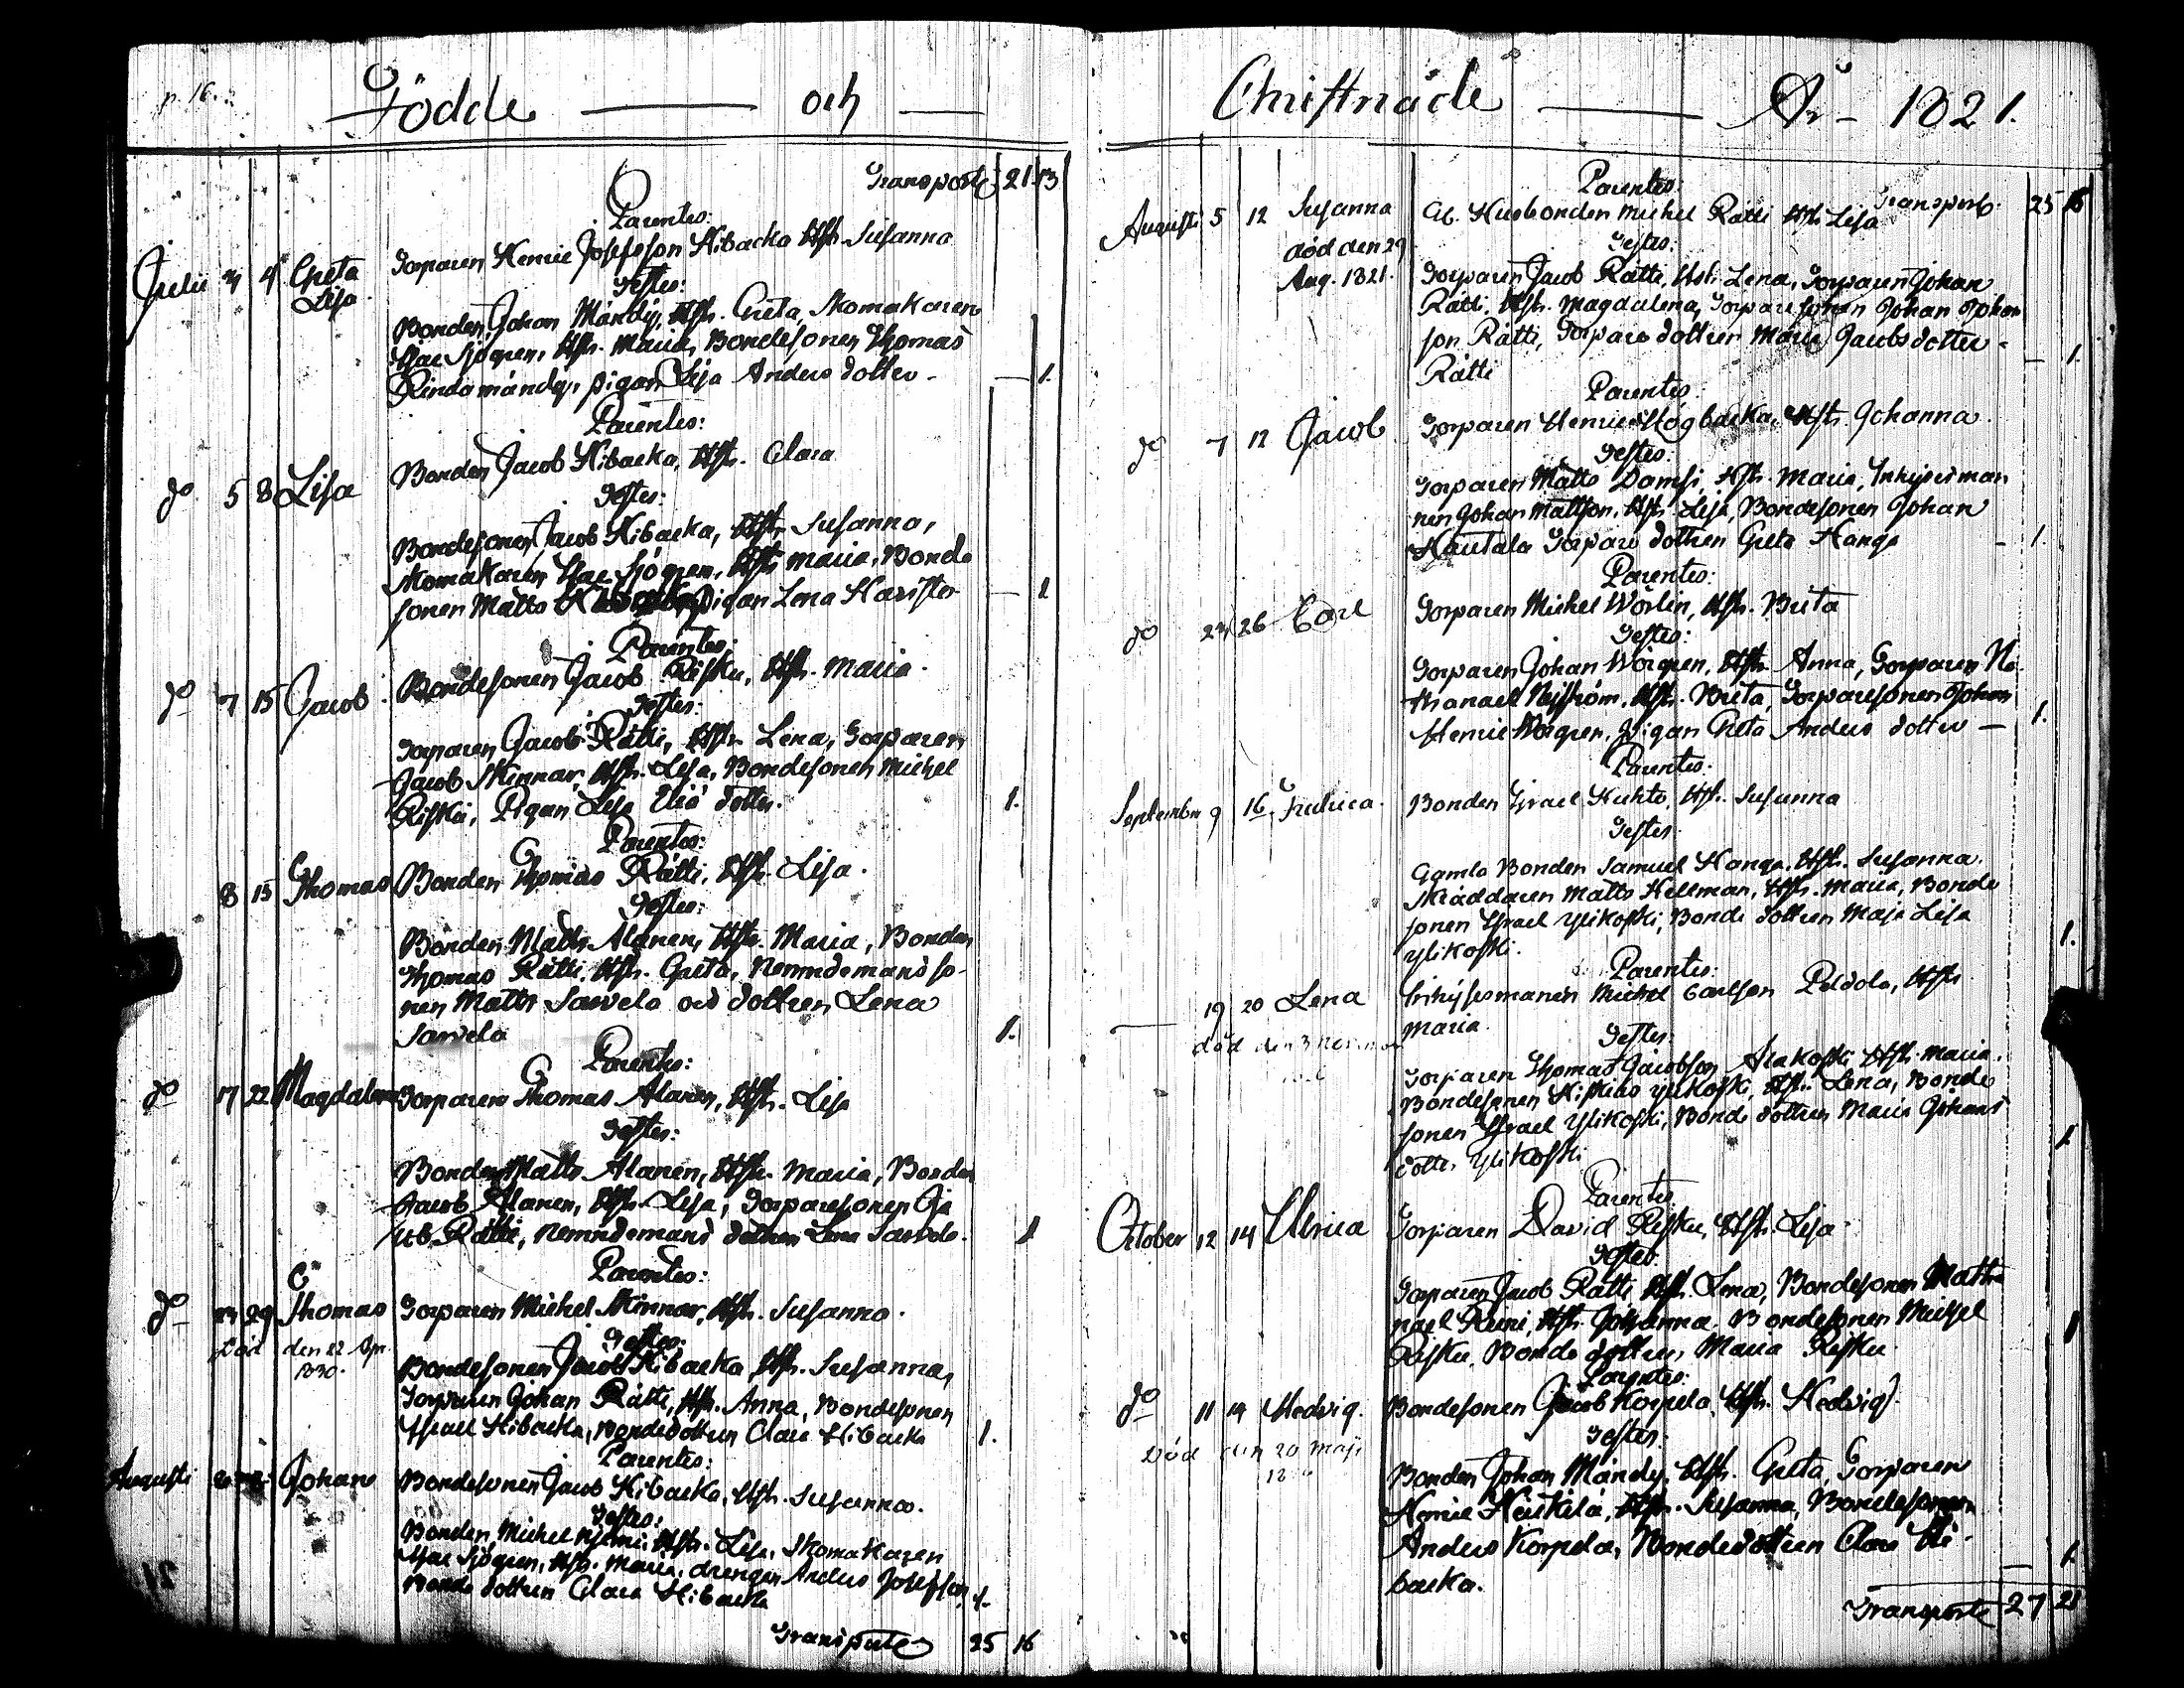 p. 16.
Födde — och —
Transport 21 13
Parentes:
Julii 3 4 Greta Torparen Henric Josefsson Hibacka Hst. Susanna
Lisa
Testes:
Bonden Johan Måndy, Hst. Greta, Skomakaren
Isac Sjögren, Hst. Maria, Bondesonen Thomas
Rindamåndy, pigan Lisa Anders dotter — 1.
Parentes:
do 5 8 Lisa Bonden Jacob Hibacka, Hst. Clara
Testes:
Bondesonen Jacob Hibacka, Hst. Susanna,
Skomakaren Isac Sjögren, Hst. Maria, Bonde
sonen Matts pigan Lena — 1
Parentes:
do 7 15 Jacob Bondesonen Jacob Risku, Hst. Maria.
Testes:
Torparen Jacob Rätti, Hst. Lena, Torparen
Jacob Skinnar, Hst. Lisa, Bondesonen Michel
Risku, Pigan Lisa dotter. 1.
Parentes:
8 15 Thomas Bonden Thomas Rätti, Hst. Lisa.
Testes:
Bonden Matts Alanen, Hst. Maria, Bonden
Thomas Rätti, Hst. Greta, Nemndemans so-
nen Matts Sarvela och dottren Lena
Sarvela 1.
Parentes:
do 17 22 Magdalena Torparen Thomas Alanen, Hst. Lisa
Testes:
Bonden Matts Alanen, Hst. Maria, Bonden
Jacob Alanen, Hst. Lisa, Torparesonen Ja
cob Rätti, Nemndemans dottren Lena Sarvela. 1
Parentes:
do 29 Thomas Torparen Michel Skinnar, Hst. Susanna.
Död den 22 Apr.
1830.
Testes:
Bondesonen Jacob Hibacka, Hst. Susanna,
Torparen Johan Rätti, Hst. Anna, Bondesonen
Israel Hibacka, Bondedottren Clara Hibacka 1.
Parentes:
Augusti Johan Bondesonen Jacob Hibacka, Hst. Susanna.
Testes:
Bonden Michel Hst. Lisa, Skomakaren
Isac Sjögren, Hst. Maria, drengen Anders Josefsson,
Bonde dottren Clara Hibacka 1.
Transport 25 16
Christnade — År — 1821.
Parentes:
Transport 25 16
Augusti 5 12 Susanna Husbonden Michel Rätti Hst. Lisa
död den 29
Aug. 1821.
Testes:
Torparen Jacob Rätti, Hst. Lena, Torparen Johan
Rätti, Hst. Magdalena, Torparesonen Johan Johan
son Rätti, Torpare dottren Maria Jacobsdotter
Rätti — 1.
Parentes:
do 7 12 Jacob Torparen Henric Högbacka, Hst. Johanna
Testes:
Torparen Matts Damsi, Hst. Maria, Inhysesman
nen Johan Mattson, Hst. Lisa, Bondesonen Johan
Hautala Torpare dottren Greta Hanga — 1.
Parentes:
do 26 Carl Torparen Michel Wörlin, Hst. Brita
Testes:
Torparen Johan Wörgren, Hst. Anna, Torparen Na
thanael Nyström, Hst. Brita, Torparesonen Johan
Henric Wörgren, Pigan Greta Anders dotter — 1.
Parentes:
September 9 16 Bonden Israel Huhta, Hst. Susanna
Testes:
Gamla Bonden Samuel Hanga, Hst. Susanna
Skräddaren Matts Hellman, Hst. Maria, Bonde
sonen Israel Ylikoski, Bonde dottren Maja Lisa
Ylikoski. 1.
Parentes:
19 20 Lena Inhysesmannen Michel Carlson Peldola, Hst.
Maria.
död den 3 November
Testes:
Torparen Thomas Jacobson Alakoski Hst. Maria.
Bondesonen Hiskias Ylikoski, Hst. Lena, Bonde
sonen Israel Ylikoski, Bonde dottren Maria Johans
dotter Ylikoski 1
Parentes
October 12 14 Ulrica Torparen David Risku, Hst. Lisa
Testes:
Torparen Jacob Rätti Hst. Lena, Bondesonen
Hst. Johanna. Bondesonen Michel
Risku, Bonde dottren Maria Risku. 1
Parentes:
do 11 14 Hedvig. Bondesonen Jacob Korpela, Hst. Hedvig.
Död den 20 Maji
Testes:
Bonden Johan Måndy, Hst. Greta, Torparen
Henric Heikkilä, Hst. Susanna, Bondesonen
Anders Korpela, Bondedottren Clara Hi-
backa. — 1
Transport 27 21